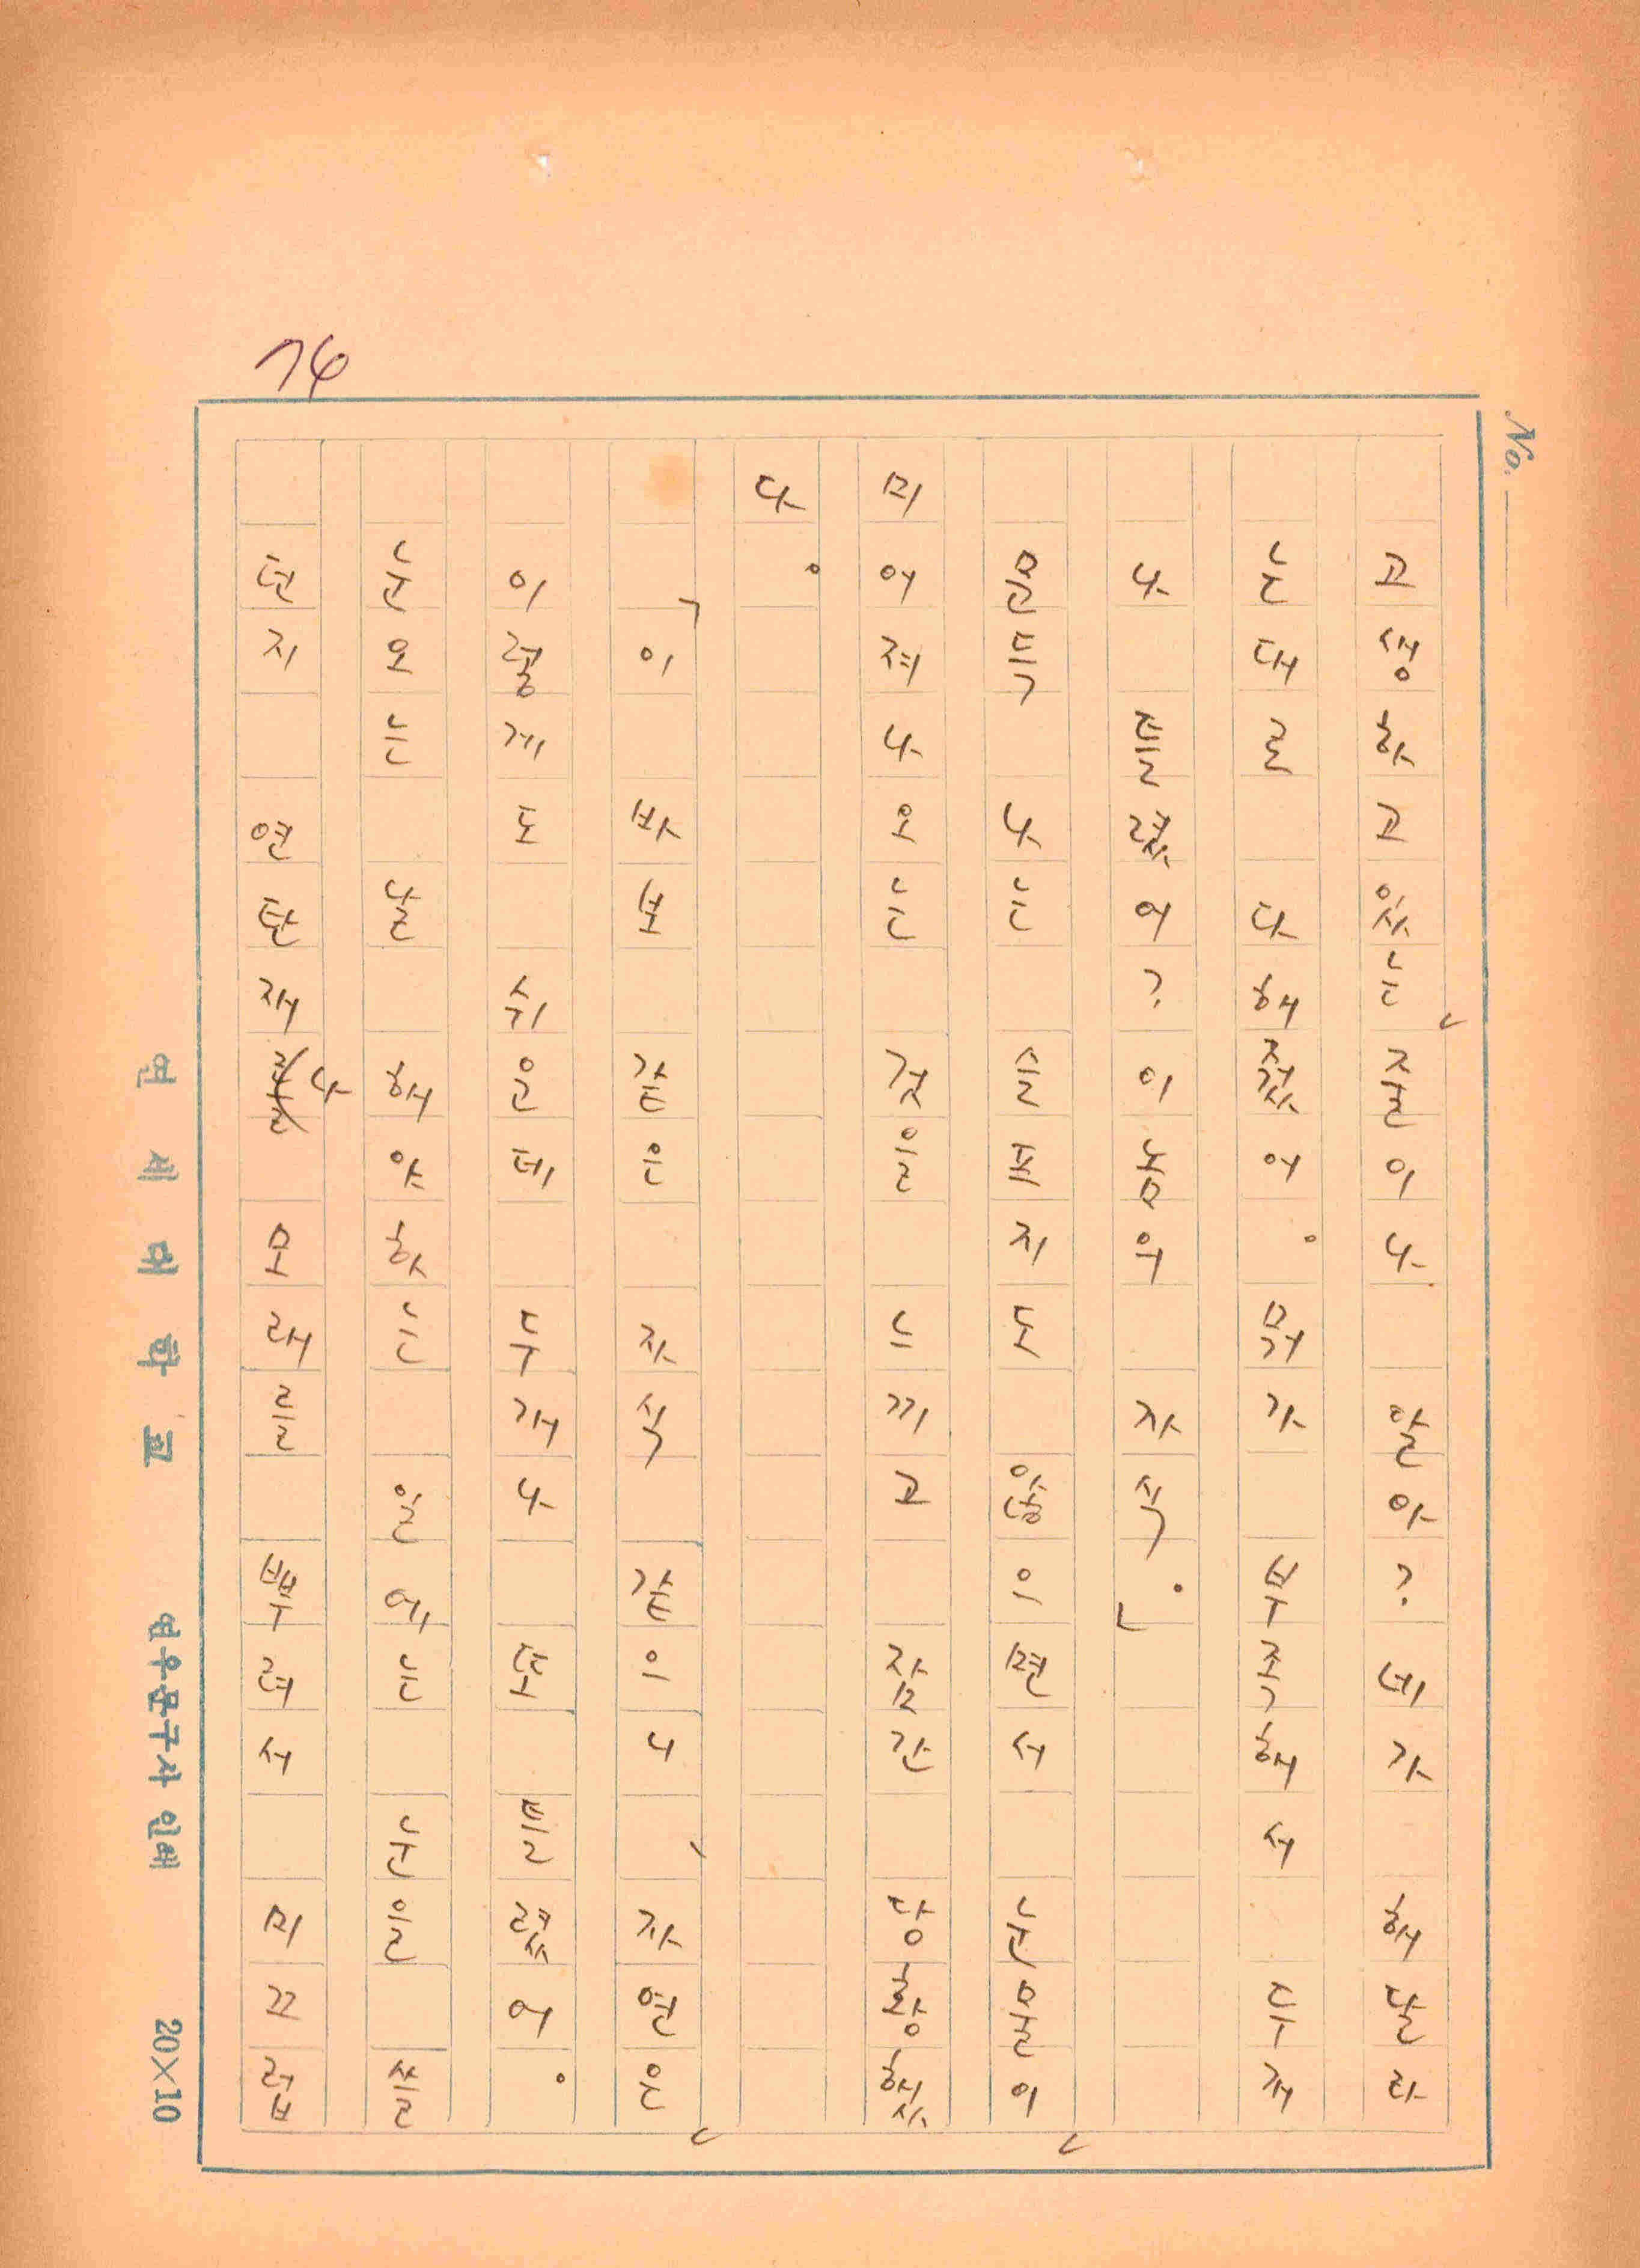 고생하고있는 줄이나 알아? 네가 해달라
는대로 다해줬어. 뭐가 부족해서 두개
나 틀렸어? 이놈우 자슥」.
문득 나는슬프지도 않으면서 눈물이
미어져나오는 것을 느끼고 잠간 당황했
다.
「이 바보 같은 자슥 같으니, 자연은
이렇게도 쉬운데 두개나 또 틀렸어.
눈오는 날 해야하는 일에는 눈을 쓸
던지 연탄재나 모래를 뿌려서 미끄럽
74
No.
연세대학교 연우문구사 인쇄 20×10